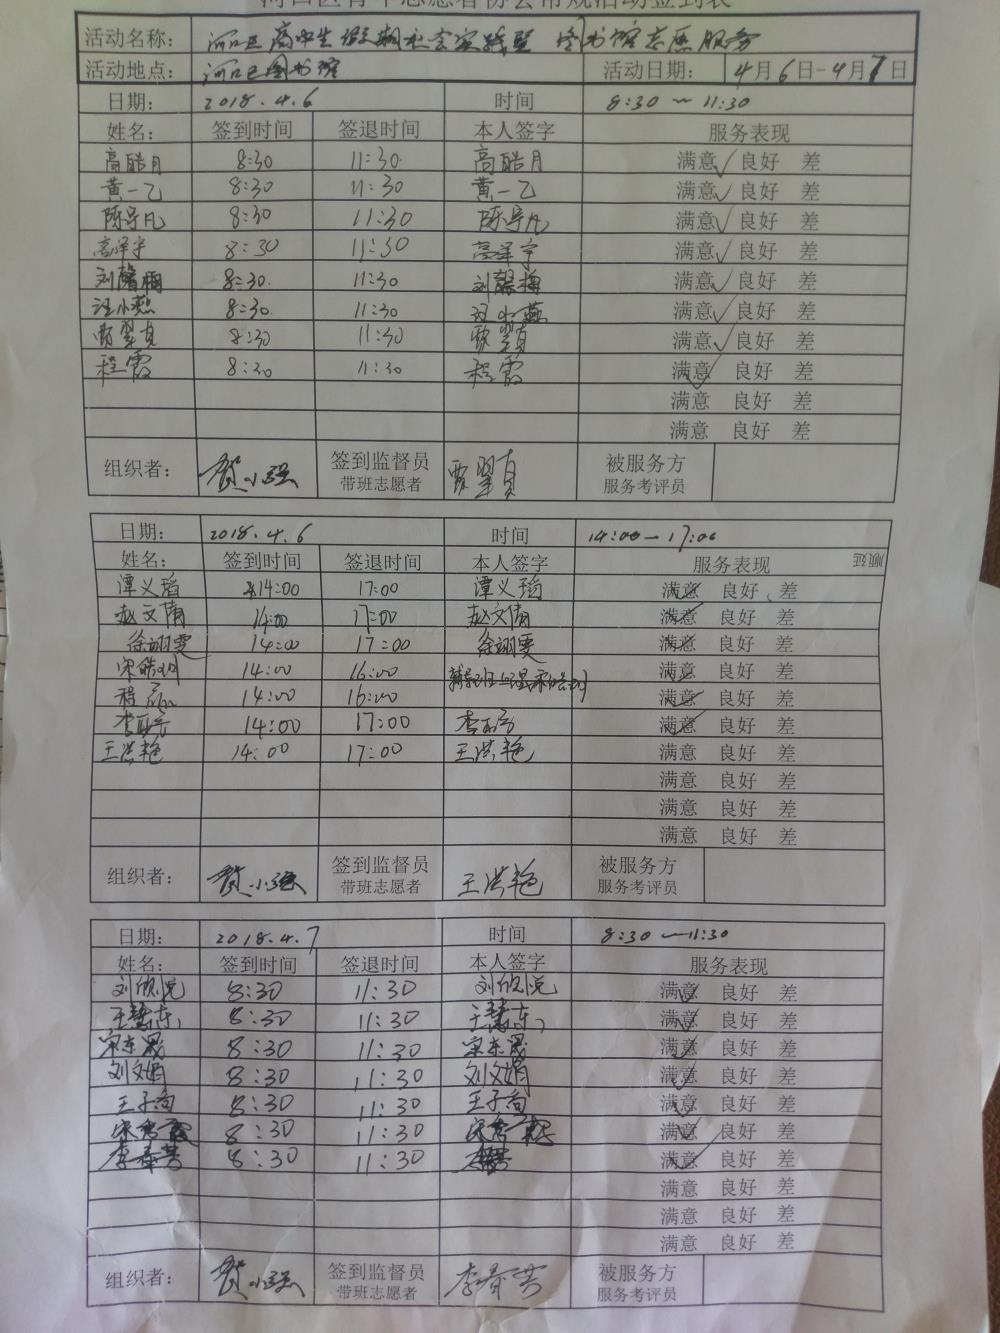 河口区青年志愿者协会常规活动签到表
活动名称： 河口区高中生假期社会实践暨 图书馆志愿服务
活动地点： 河口区图书馆 活动日期： 4月6日-4月7日
日期： 2018.4.6 时间 8:30~11:30
姓名： 签到时间 签退时间 本人签字 服务表现
高皓月 8:30 11:30 高皓月 满意✓ 良好 差
黄一乙 8:30 11:30 黄一乙 满意✓ 良好 差
陈导凡 8:30 11:30 陈导凡 满意✓ 良好 差
高泽宇 8:30 11:30 高泽宇 满意✓ 良好 差
刘馨梅 8:30 11:30 刘馨梅 满意✓ 良好 差
汪小燕 8:30 11:30 汪小燕 满意✓ 良好 差
贾翠真 8:30 11:30 贾翠真 满意✓ 良好 差
程霞 8:30 11:30 程霞 满意✓ 良好 差
满意 良好 差
满意 良好 差
组织者： 贺小强 签到监督员 带班志愿者 贾翠真 被服务方 服务考评员
日期： 2018.4.6 时间 14:00-17:00
姓名： 签到时间 签退时间 本人签字 服务表现 顺延
谭义瑫 14:00 17:00 谭义瑫 满意✓ 良好 差
赵文倩 14:00 17:00 赵文倩 满意✓ 良好 差
徐翊雯 14:00 17:00 徐翊雯 满意✓ 良好 差
宋皓 14:00 16:00 满意✓ 良好 差
程 14:00 16:00 满意✓ 良好 差
李 14:00 17:00 李 满意✓ 良好 差
王洪艳 14:00 17:00 王洪艳 满意 良好 差
满意 良好 差
满意 良好 差
满意 良好 差
组织者： 贺小强 签到监督员 带班志愿者 王洪艳 被服务方 服务考评员
日期： 2018.4.7 时间 8:30-11:30
姓名： 签到时间 签退时间 本人签字 服务表现
刘欣悦 8:30 11:30 刘欣悦 满意✓ 良好 差
王慧东 8:30 11:30 王慧东 满意✓ 良好 差
宋东晟 8:30 11:30 宋东晟 满意✓ 良好 差
刘文娟 8:30 11:30 刘文娟 满意✓ 良好 差
王子旬 8:30 11:30 王子旬 满意✓ 良好 差
宋秀霞 8:30 11:30 宋秀 满意✓ 良好 差
李春芳 8:30 11:30 满意✓ 良好 差
满意 良好 差
满意 良好 差
满意 良好 差
组织者： 贺小强 签到监督员 带班志愿者 李春芳 被服务方 服务考评员